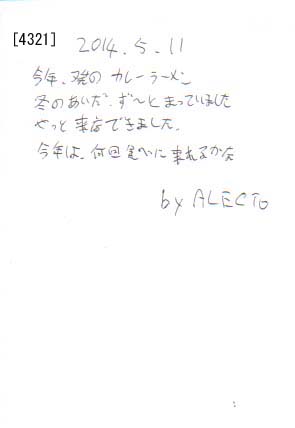 [4321]
2014.5.11
今年、初の カレーラーメン
冬のあいだ、ず〜とまっていました
やっと来店できました。
今年は、何回食べに来れるかな
by ALECTO